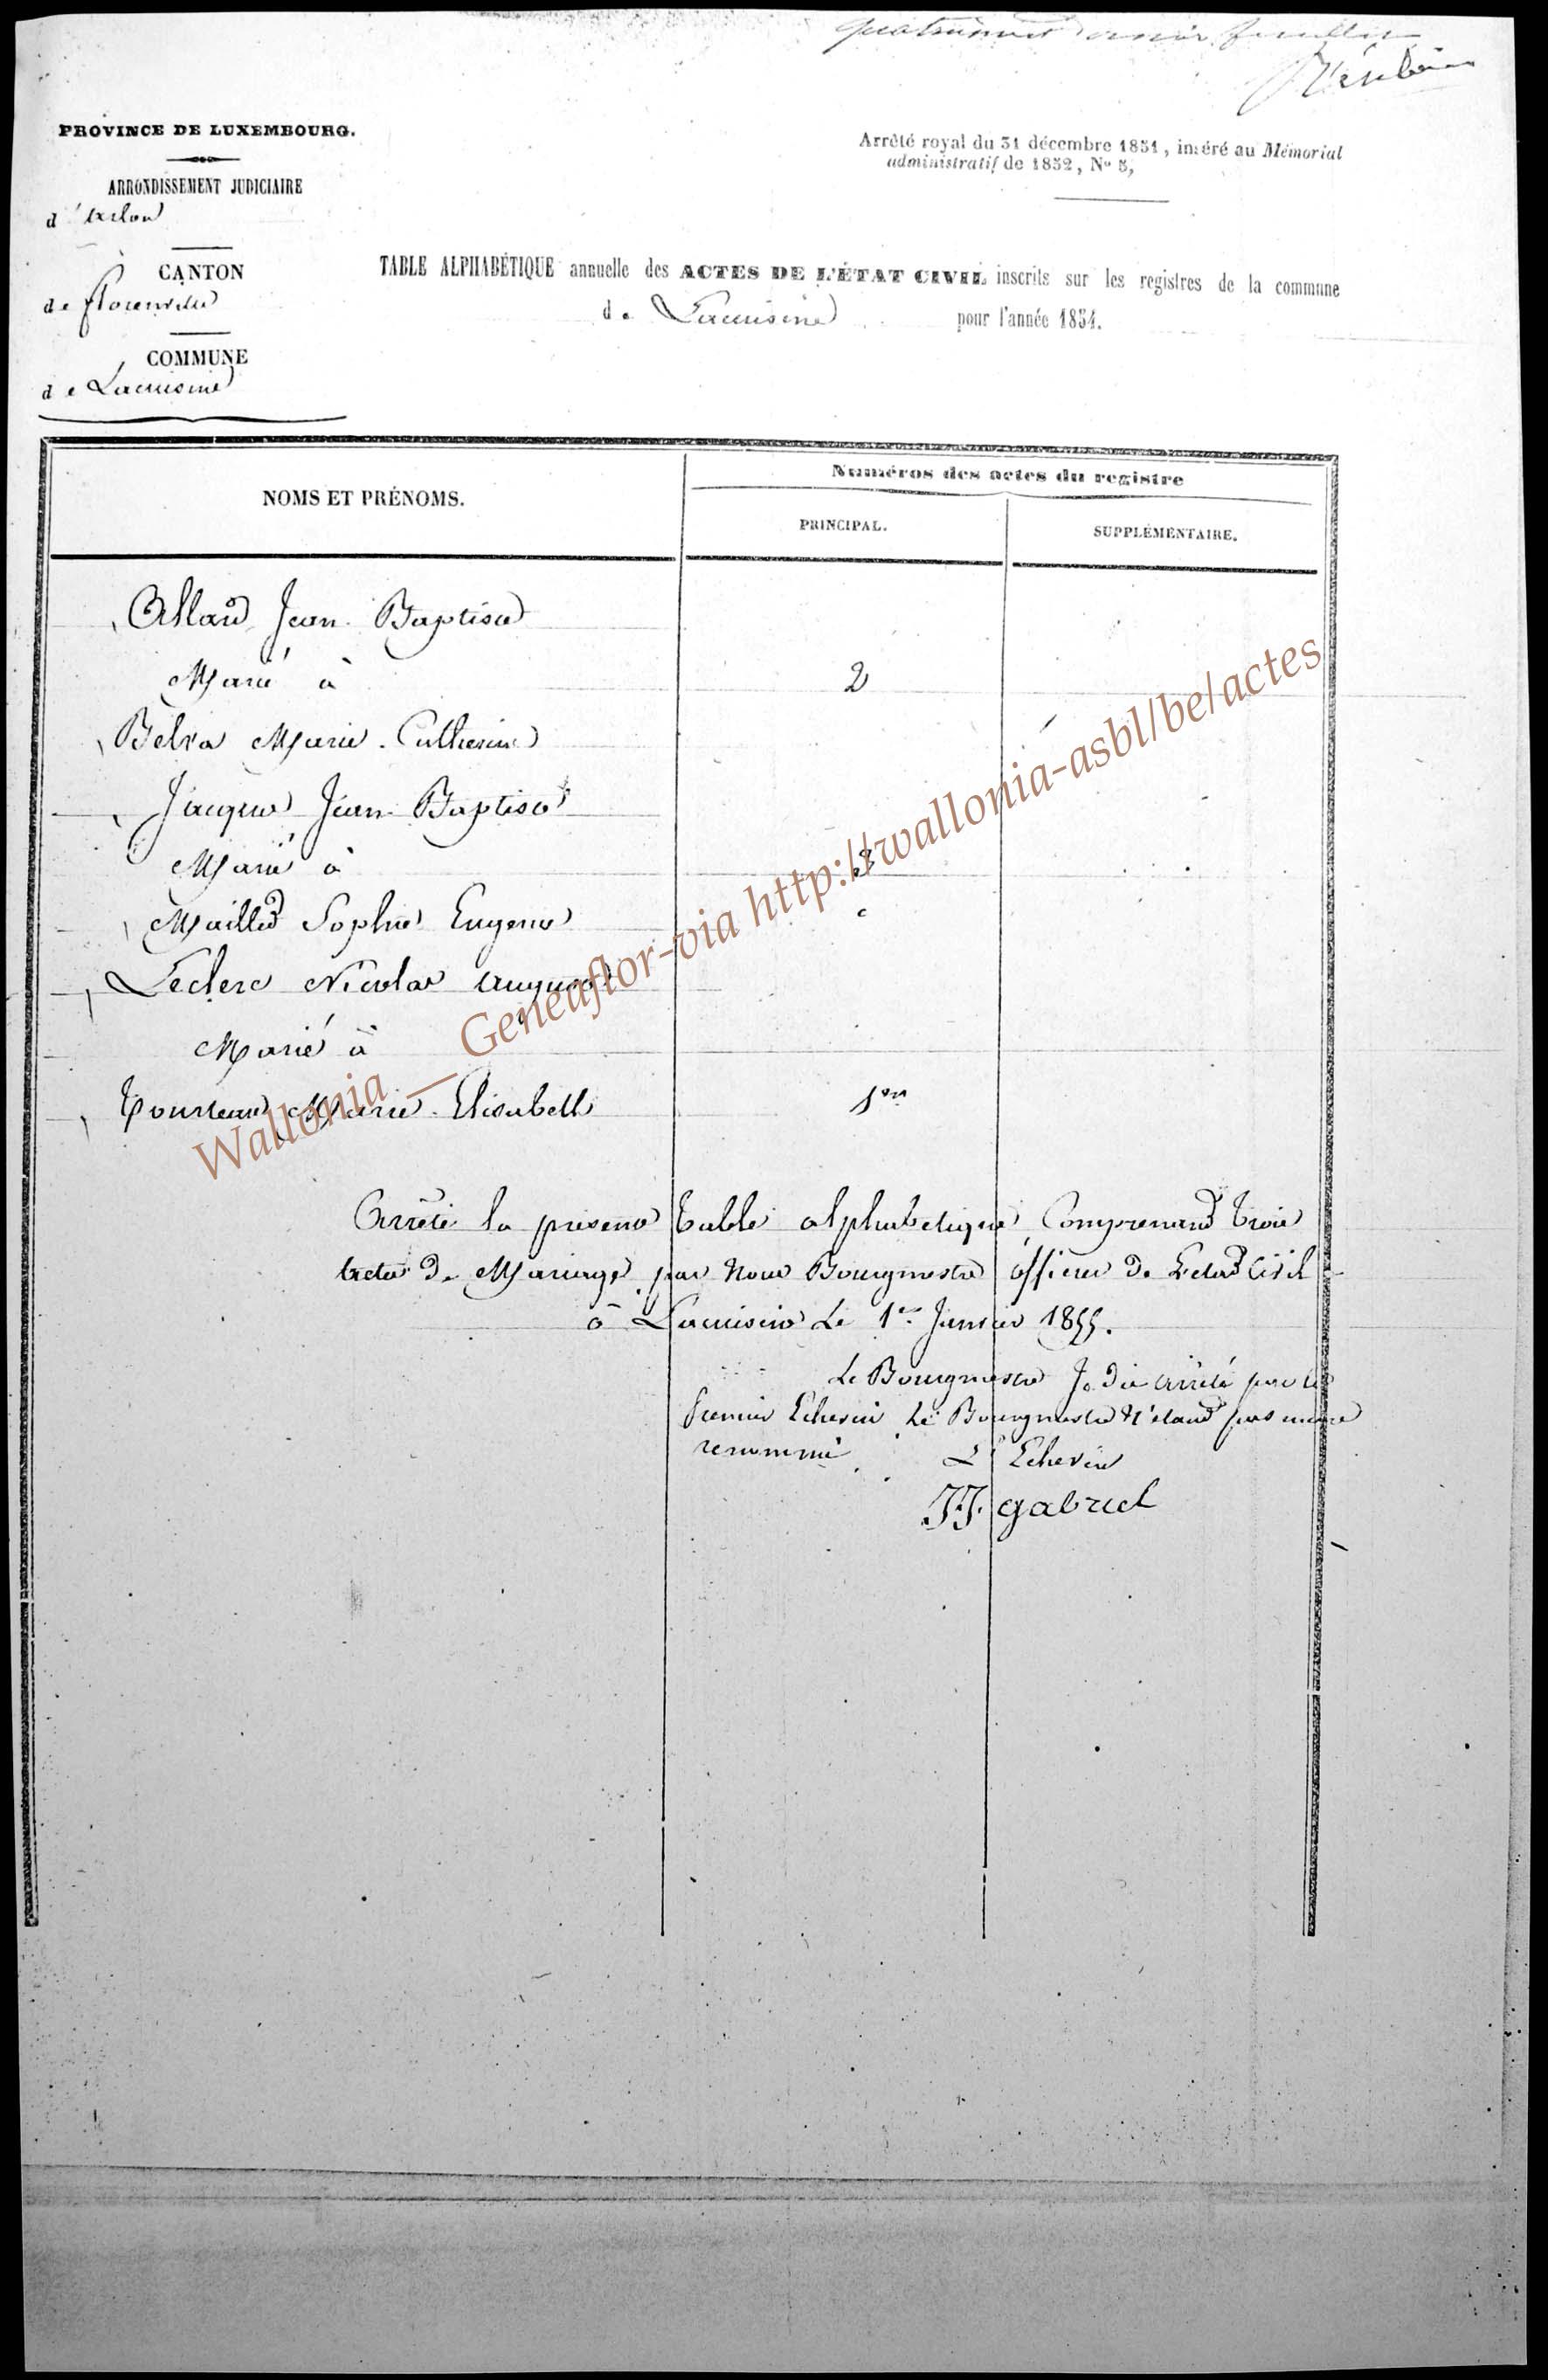 PROVINCE DE LUXEMBOURG.
ARRONDISSEMENT JUDICIAIRE
d'Arlon
CANTON
de Florenville
COMMUNE
de Lacuisine
Arrêté royal du 31 décembre 1851, inséré au Mémorial
administratif de 1852, No 5,
TABLE ALPHABÉTIQUE annuelle des ACTES DE L'ÉTAT CIVIL inscrits sur les registres de la commune
de Lacuisine pour l'année 1854.
NOMS ET PRÉNOMS.
Numéros des actes du registre
PRINCIPAL.
SUPPLÉMENTAIRE.
Allard Jean Baptiste
Marié à 2
Belva Marie Catherine
Jacques Jean Baptiste
Marié à 3
Maillet Sophie Eugenie
Leclerc Nicolas Auguste
Marié à
Marie Elisabeth 1er
Arrêté la presente table alphabetique, Comprenant trois
actes de Mariage, par Nous Bourgmestre officier de L'etat Civil
à Lacuisine Le 1er Janvier 1855.
Le Bourgmestre Je dis arrêté par le
premier Echevin Le Bourgmestre N'étant pas encore
renommé
L'Echevin
JJ. gabriel
Wallonia _ Geneaflor-via http://wallonia-asbl/be/actes